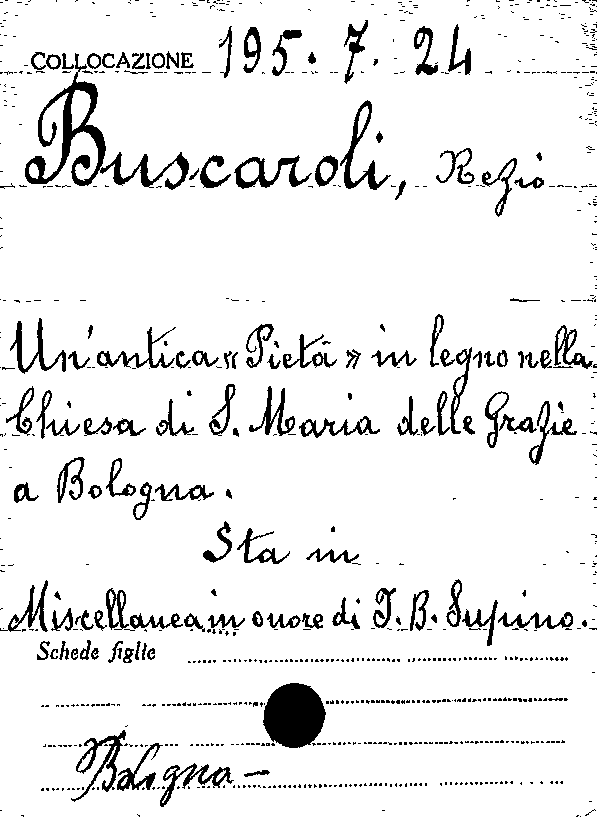 COLLOCAZIONE 195. 7. 24
Buscaroli, Rezio
Un'antica «Pietà» in legno nella
Chiesa di S. Maria delle Grazie
a Bologna.
Sta in
Miscellanea in onore di I. B. Supino.
Schede figlie
Bologna -